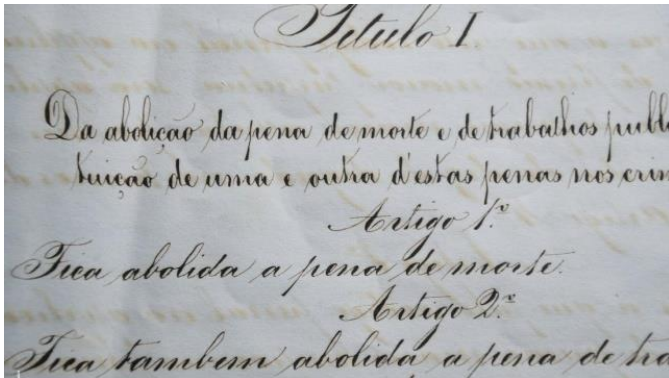 Titulo I.
Da abolição da pena de morte e de trabalhos publ
tuição de uma e outra d'estas penas nos crim
Artigo 1.º
Fica abolida a pena de morte.
Artigo 2.º
Fica tambem abolida a pena de tra